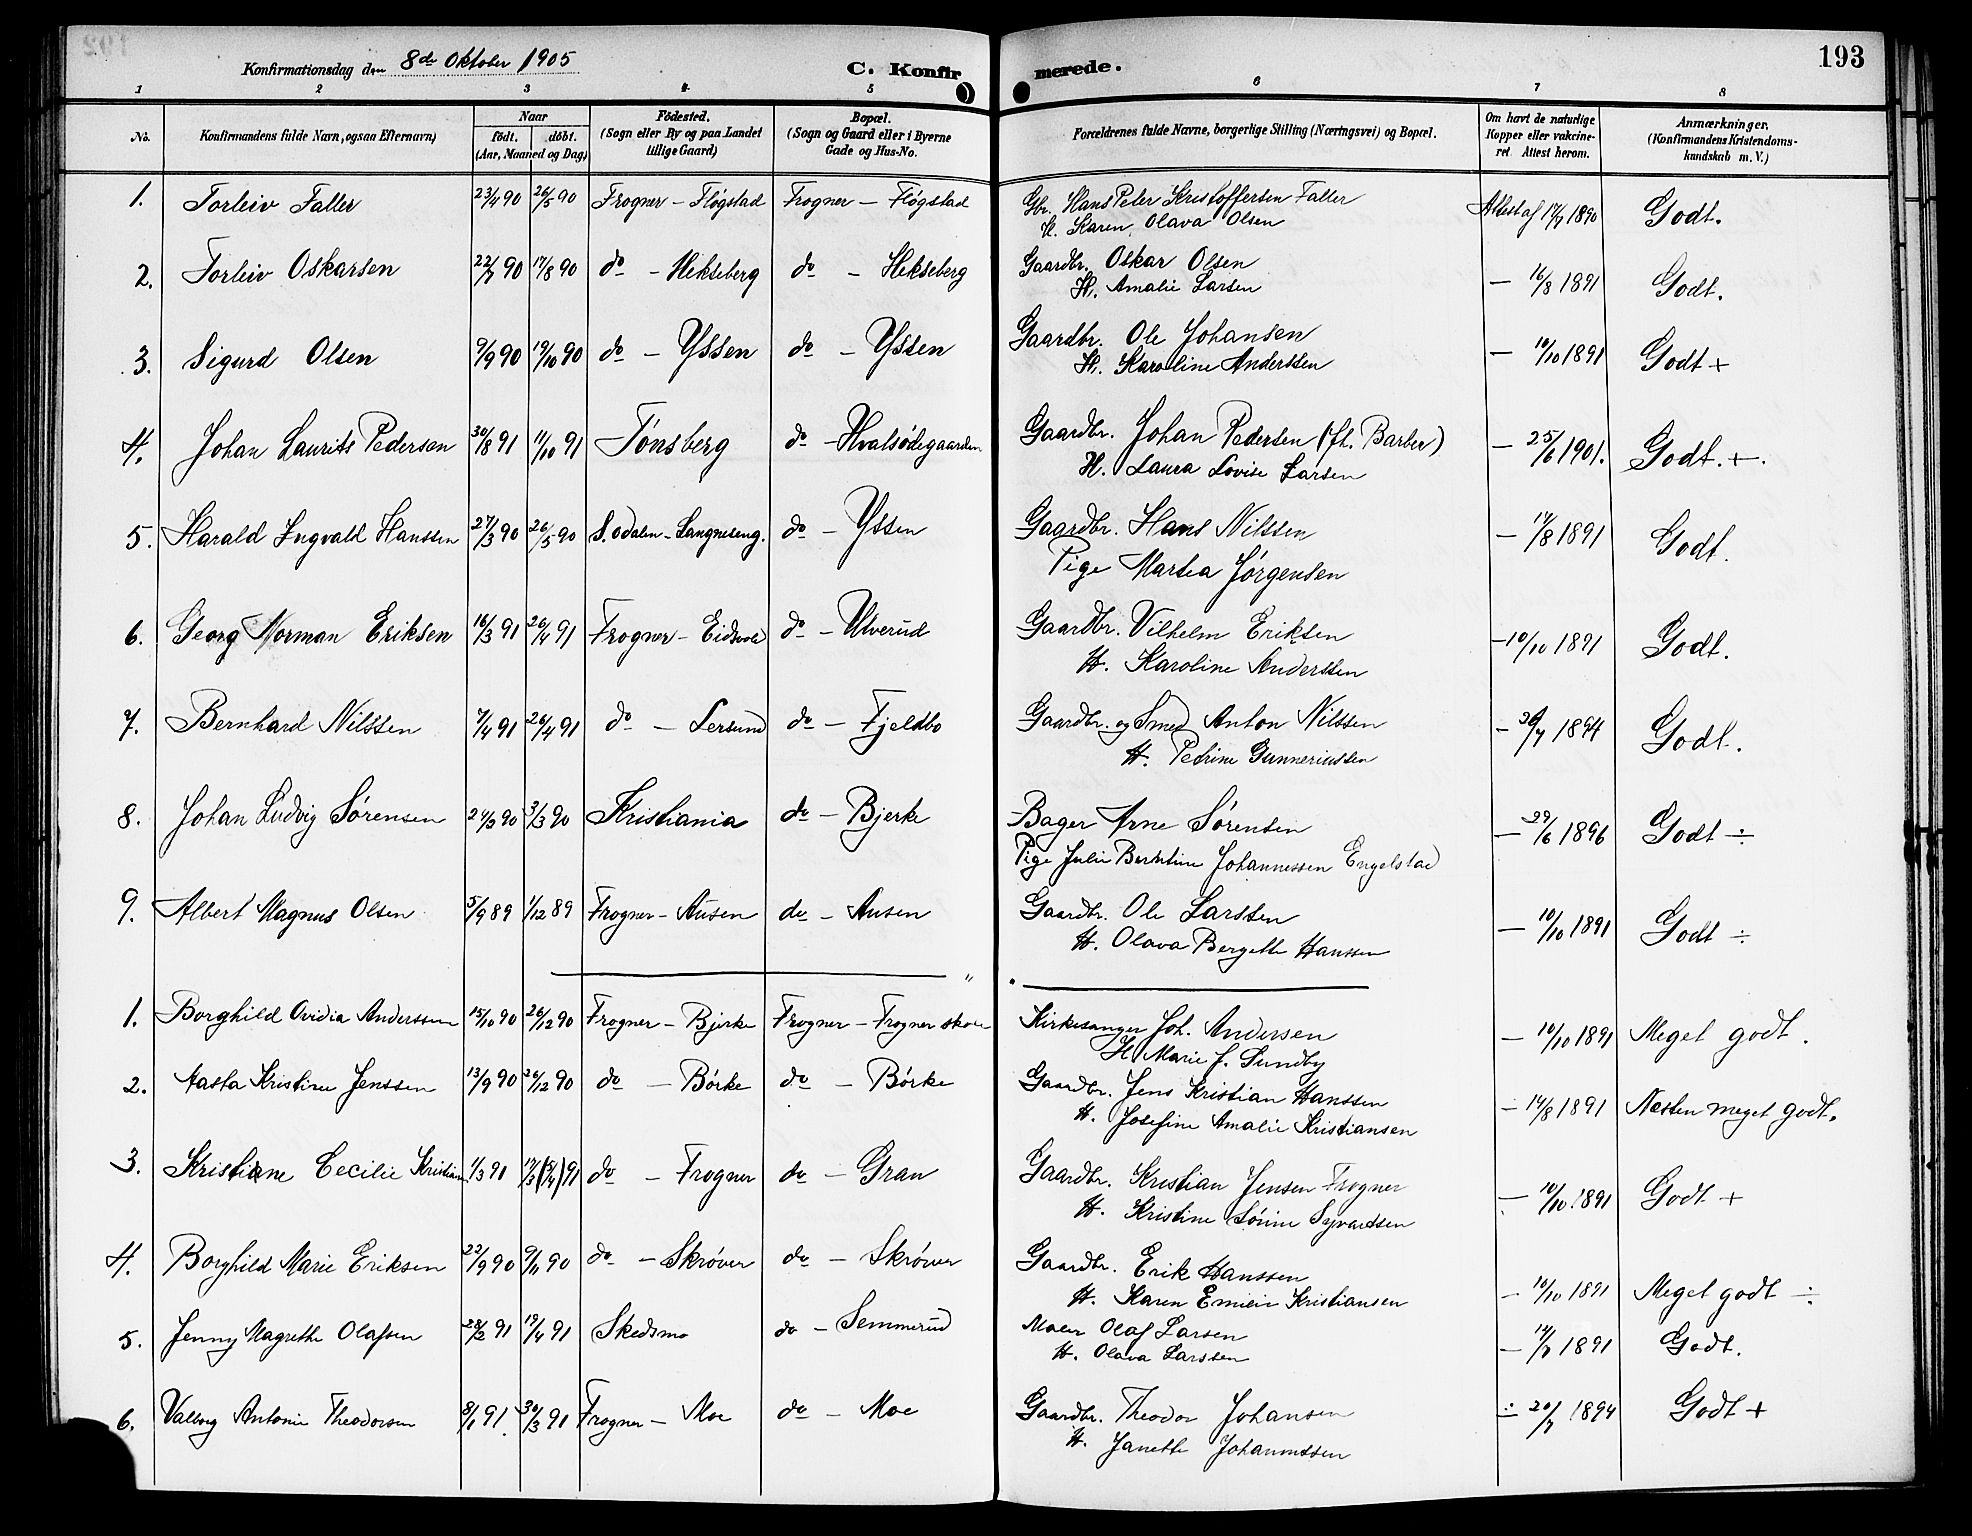 193
Konfirmationsdag den 8de Oktober 1905
C. Konfirmerede.
1 2 3 4 5 6 7 8
No. Konfirmandens fulde Navn, ogsaa Efternavn) Naar født. døbt. (Aar, Maaned og Dag) Fødested. (Sogn eller By og paa Landet tillige Gaard) Bopæl. (Sogn og Gaard eller i Byerne Gade og Hus-No. Forældrenes fulde Navne, borgerlige Stilling (Næringsvei) og Bopæl. Om havt de naturlige Kopper eller vakcineret. Attest herom. Anmærkninger. (Konfirmandens Kristendomskundskab m. V.)
1. Torleiv Faller 23/4 90 26/5 90 Frogner - Fløgstad Frogner - Fløgstad Gbr. Hans Peter Kristoffersen Faller Attest af 17/7 1890 Godt.
H. Karen Olava Olsen
2. Torleiv Oskarsen 22/7 90 17/8 90 do - Hekseberg do - Hekseberg Gaardbr. Oskar Olsen — 16/8 1891 Godt.
H. Amalie Larsen
3. Sigurd Olsen 9/9 90 19/10 90 do - Yssen do - Yssen Gaardbr. Ole Johansen — 10/10 1891 Godt +
H. Karoline Anderssen
4. Johan Laurits Pedersen 30/8 91 11/10 91 Tønsberg do - Hvalsødegaarden Gaardbr. Johan Pedersen (fh. Barber) — 25/6 1901. Godt. +.
H. Laura Lovise Larsen
5. Harald Ingvald Hanssen 27/3 90 26/5 90 S. Odalen - Langneseng. do - Yssen Gaardbr. Hans Nilssen — 17/8 1891 Godt.
Pige Martea Jørgensen
6. Georg Norman Eriksen 16/3 91 26/4 91 Frogner - Eidsvold do - Ulverud Gaardbr. Vilhelm Eriksen — 10/10 1891 Godt.
H. Karoline Anderssen
7. Bernhard Nilssen 7/4 91 26/4 91 do - Lersund do - Fjeldbo Gaardbr. og Smed Anton Nilssen — 1894 Godt.
H. Petrine Gunneriussen
8. Johan Ludvig Sørensen 90 3/3 90 Kristiania do - Bjerke Bager Arne Sørensen — 29/6 1896 Godt ÷
Pige Julie Johannessen Engelstad
9. Albert Magnus Olsen 5/9 89 1/12 89 Frogner - Ausen do - Ausen Gaardbr. Ole Larssen — 10/10 1891 Godt ÷
H. Olava Bergette Hanssen
1. Borghild Ovidia Anderssen 15/10 90 26/12 90 Frogner - Bjerke Frogner - Frogner skole Kirkesanger Joh. Andersen — 10/10 1891 Meget godt.
H. Marie J. Sundby
2. Aasta Kristine Jenssen 13/9 90 26/12 90 do - Børke do - Børke Gaardbr. Jens Kristian Hanssen — 14/8 1891 Næsten meget godt.
H. Josefine Amalie Kristiansen
3. Kristiane Cecilie Kristians. 1/3 91 17/3 (5/4) 91 do - Frogner do - Gran Gaardbr. Kristian Jensen Frogner — 10/10 1891 Godt +
H. Kristine Sørine Syvardsen
4. Borghild Marie Eriksen 22/9 90 9/11 90 do - Skrøver do - Skrøver Gaardbr. Erik Hanssen — 10/10 1891 Meget godt ÷
H. Karen Emilie Kristiansen
5. Jenny Magrethe Olafsen 28/2 91 19/4 91 Skedsmo do - Semmerud Maler Olaf Larsen — 1891 Godt.
H. Olava Larssen
6. Valborg Antonie Theodorsen 8/1 91. 30/3 91 Frogner - Moe do - Moe Gaardbr. Theodor Johansen ÷ 20/7 1894 Godt +
H. Janette Johannessen